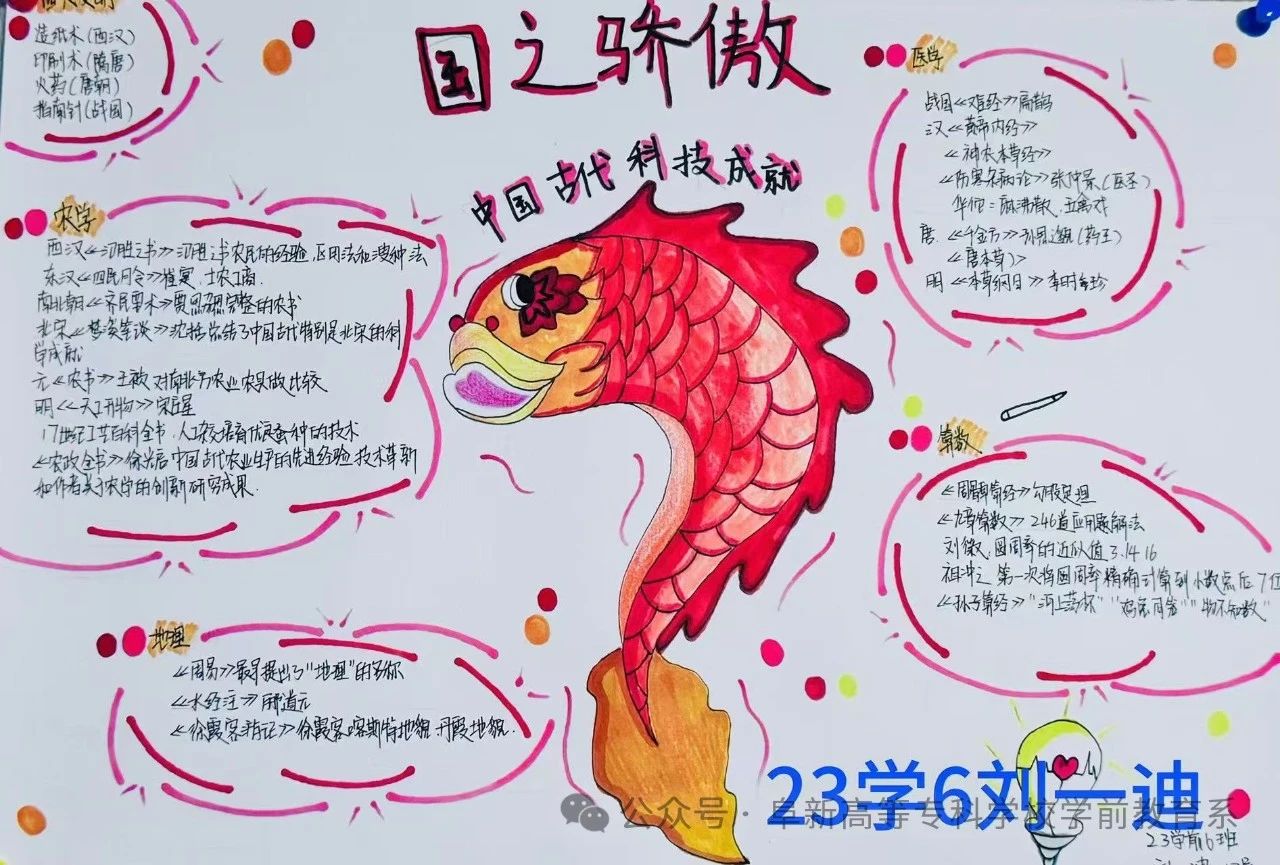 国之骄傲
中国古代科技成就
造纸术(西汉)
印刷术(隋唐)
火药(唐朝)
指南针(战国)
农学
西汉《氾胜之书》氾胜之书农民的经验,区田法和溲种法
东汉《四民月令》崔寔.士农工商.
南北朝《齐民要术》贾思勰完整的农书
北宋《梦溪笔谈》沈括总结了中国古代特别是北宋的科
学成就
元《农书》王祯 对南北方农业农具做比较
明《天工开物》宋应星
17世纪工艺百科全书.人工杂交培育优良蚕种的技术
《农政全书》徐光启中国古代农业生产的先进经验 技术革新
和作者关于农学的创新研究成果.
地理
《周易》最早提出了“地理”的名称
《水经注》郦道元
《徐霞客游记》徐霞客.喀斯特地貌.丹霞地貌.
医学
战国《难经》扁鹊
汉《黄帝内经》
《神农本草经》
《伤寒杂病论》张仲景(医圣)
华佗:麻沸散、五禽戏
唐.《千金方》孙思邈(药王)
《唐本草》
明《本草纲目》李时珍
算数
《周髀算经》勾股定理
《九章算数》246道应用题解法
刘徽.圆周率的近似值3.1416
祖冲之 第一次将圆周率精确计算到小数点后7位
《孙子算经》“河上荡杯”“鸡兔同笼”“物不知数”
23学6刘一迪
公众号·阜新高等专科学校学前教育系
23学前6班